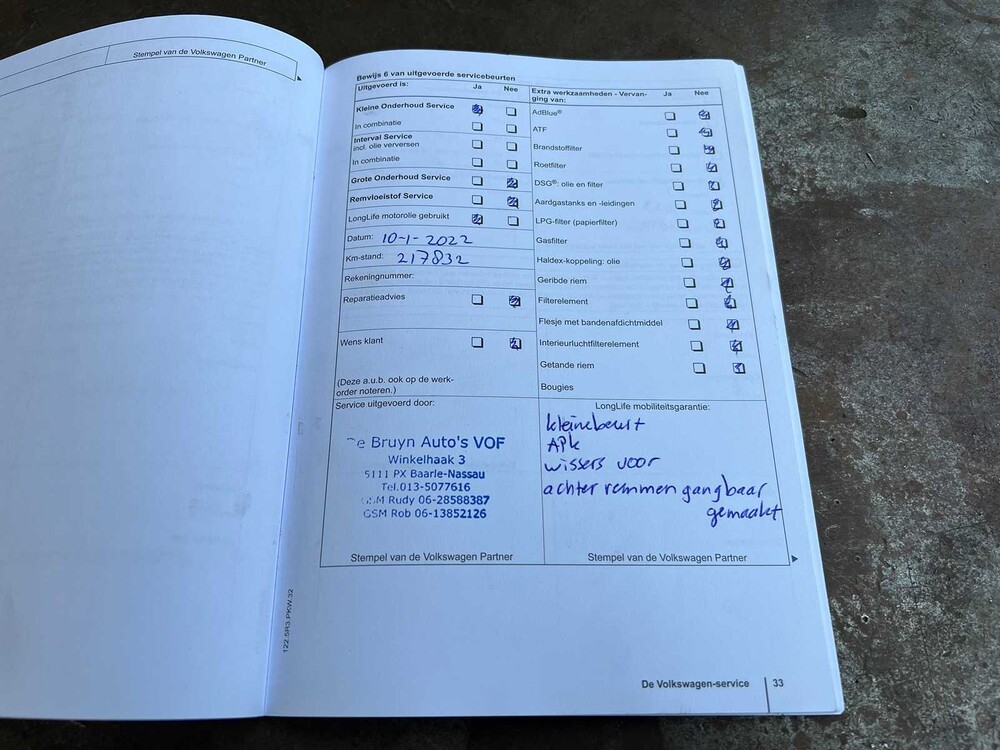 Stempel van de Volkswagen Partner
Bewijs 6 van uitgevoerde servicebeurten
Uitgevoerd is: Ja Nee
Kleine Onderhoud Service
In combinatie
Interval Service
incl. olie verversen
In combinatie
Grote Onderhoud Service
Remvloeistof Service
LongLife motorolie gebruikt
Datum: 10-1-2022
Km-stand: 217832
Rekeningnummer:
Reparatieadvies
Wens klant
(Deze a.u.b. ook op de werk-
order noteren.)
Extra werkzaamheden - Vervan-
ging van: Ja Nee
AdBlue®
ATF
Brandstoffilter
Roetfilter
DSG®: olie en filter
Aardgastanks en -leidingen
LPG-filter (papierfilter)
Gasfilter
Haldex-koppeling: olie
Geribde riem
Filterelement
Flesje met bandenafdichtmiddel
Interieurluchtfilterelement
Getande riem
Bougies
Service uitgevoerd door:
De Bruyn Auto's VOF
Winkelhaak 3
5111 PX Baarle-Nassau
Tel.013-5077616
GSM Rudy 06-28588387
GSM Rob 06-13852126
Stempel van de Volkswagen Partner
LongLife mobiliteitsgarantie:
kleinebeurt
APK
wissers voor
achter remmen gangbaar
gemaakt
Stempel van de Volkswagen Partner
122.5R3.PKW.32
De Volkswagen-service 33